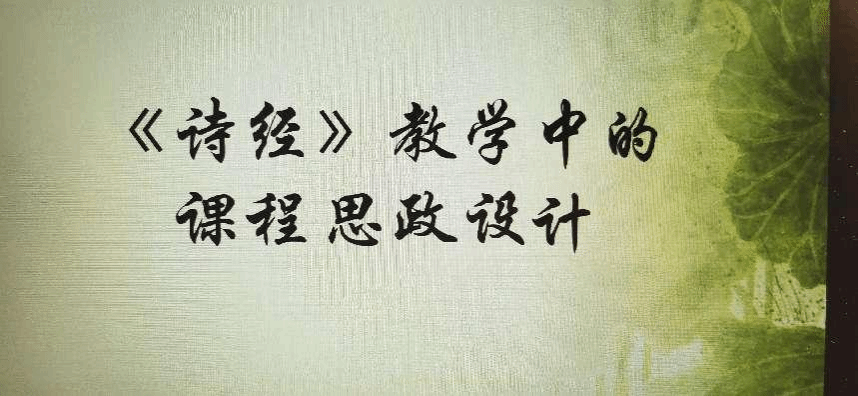 《诗经》教学中的
课程思政设计